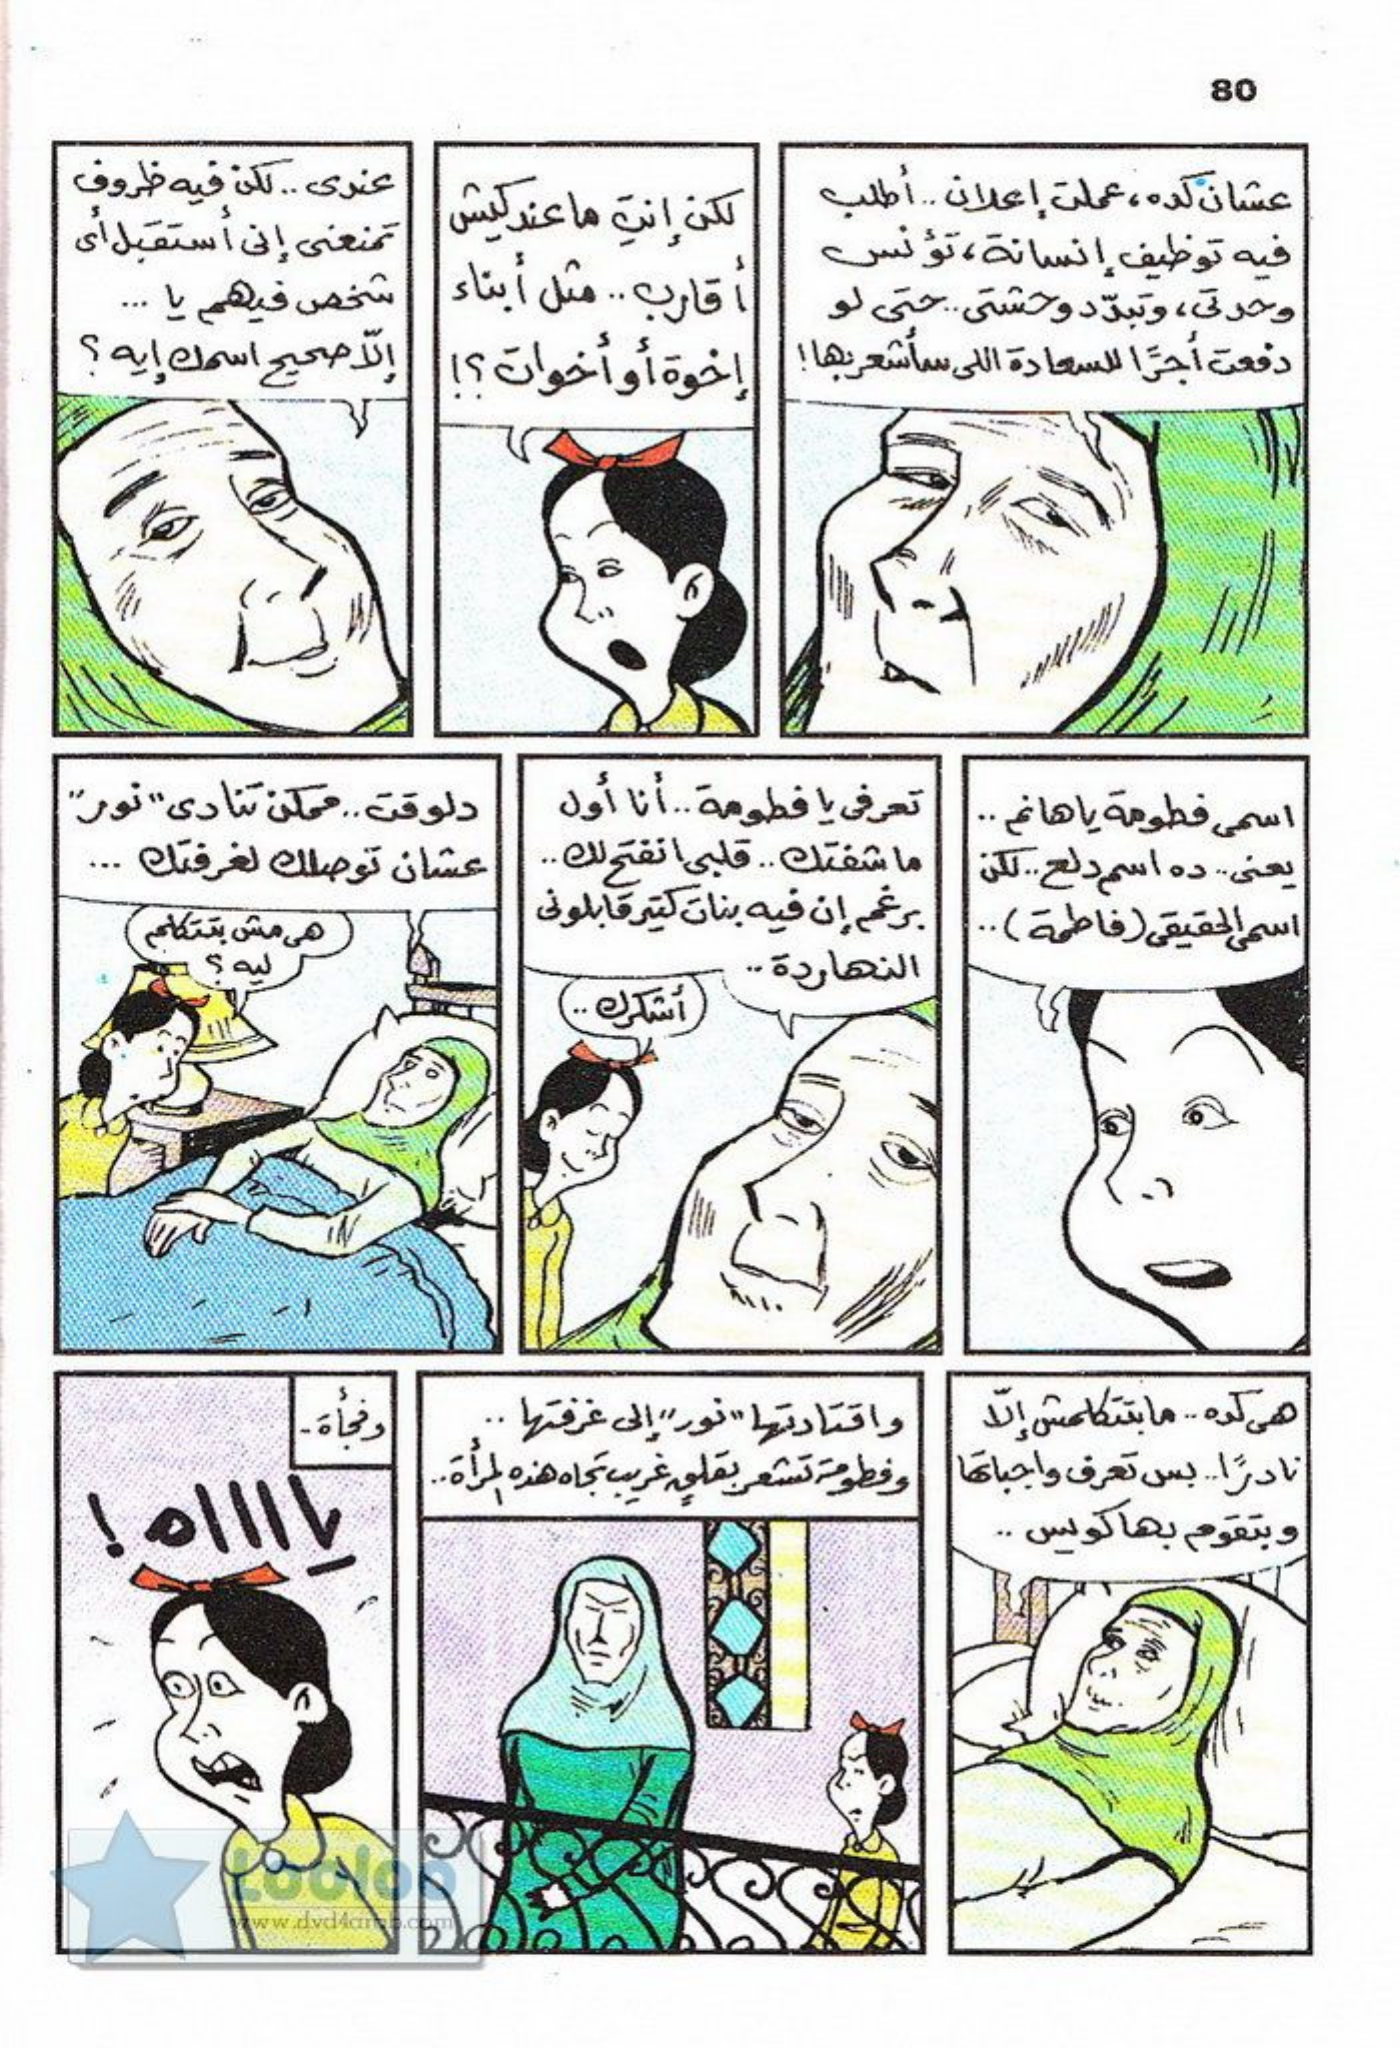 80
عشان كده، عملت إعلان .. أطلب
فيه توظيف إنسانة، تؤنس
وحدتى، وتبدّد وحشتى .. حتى لو
دفعت أجرًا للسعادة اللى سأشعر بها!
لكن إنتِ ما عندكيش
أقارب .. مثل أبناء
إخوة أو أخوات ؟!
عندى .. لكن فيه ظروف
تمنعنى إنى أستقبل أى
شخص فيهم يا ...
إلّا صحيح اسمك إيه ؟
اسمى فطومة يا هانم ..
يعنى .. ده اسم دلع .. لكن
اسمى الحقيقى (فاطمة) ..
تعرفى يا فطومة .. أنا أول
ما شفتك .. قلبى انفتح لك ..
برغم إن فيه بنات كتير قابلونى
النهاردة ..
أشكرك ..
دلوقت .. ممكن تنادى "نور"
عشان توصلك لغرفتك ...
هى مش بتتكلم
ليه ؟
هى كده .. ما بتتكلمش إلّا
نادرًا .. بس تعرف واجباتها
وبتقوم بها كويس ..
واقتادتها "نور" إلى غرفتها ..
وفطومة تشعر بقلقٍ غريب تجاه هذه المرأة ..
وفجأة -
يا اااه !
Looloo
www.dvd4arab.com